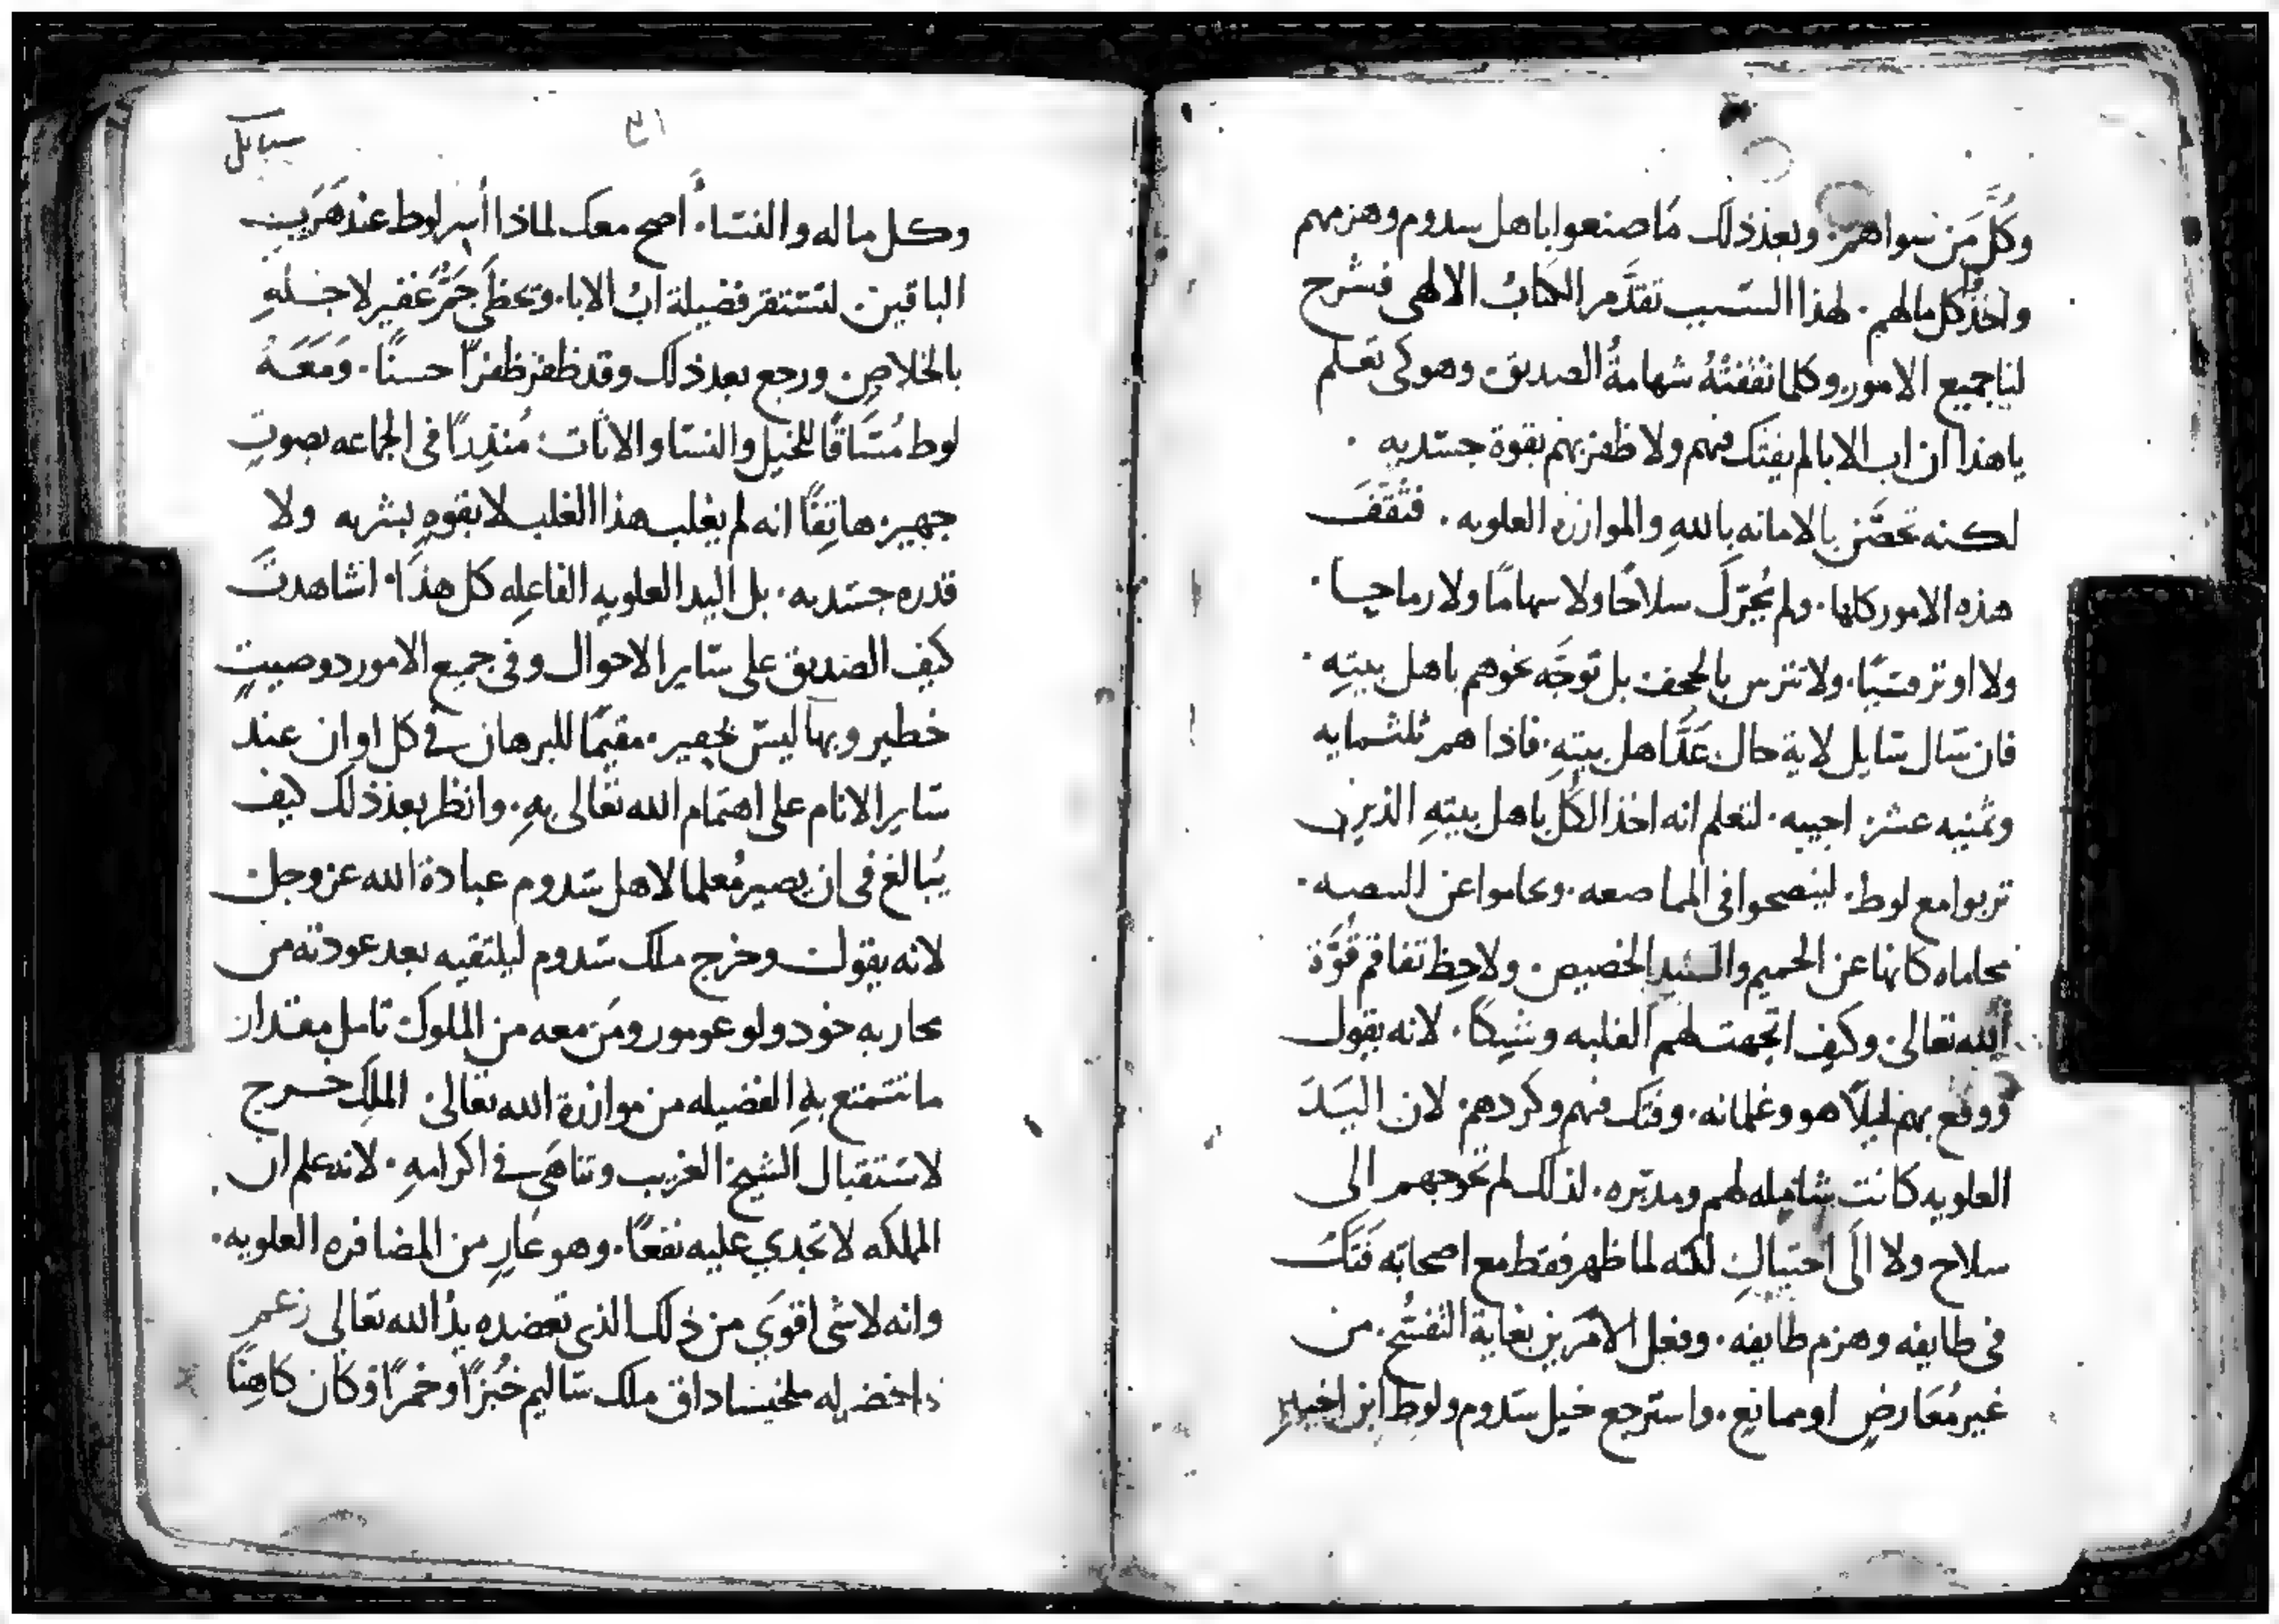 وكُلَّ مَن سواهم. وبعد ذلك مَا صنعوا باهل سدوم وهزمهم
واخذُ كل مالهم. لهذا السَبب تقدَّم الكتابُ الالهى فشرح
لنا جميع الامور. وكلما ثقفتْهُ شهامةُ الصديق وهو كى تعلم
يا هذا ان اب الابا لم يفتك فيهم ولا ظفر بهم بقوة جسَديه.
لكنه تحصَّن بالامانه بالله والموازره العلويه. فثَقَفَ
هذه الامور كلها. ولم يُجرّك سلاحًا ولا سهامًا ولا رماحيا.
ولا اوتر قسَيًا. ولا تترس بالجحف بل توجَّه نحوهم باهل بيتهِ.
فان سَال سَايل لاية حال عَدَّ اهل بيتهِ. فاذا هم ثلثمايه
وثمنيه عشر. اجيبه. لتعلم انه اخذ الكُل باهل بيتهِ الذين
تربوا مع لوط. لينصحوا فى المماصعه. وحاموا عن
محاماه كانها عن الحميم والسَيد الخصيص. ولاحِظ تفاقم قُوَّة
الله تعالى. وكيف اتجهت لهم الغلبه وشيكًا. لانه يقول
ووقع بهم ليلًا هو وغلمانه. وفتك فيهم وكردهم. لان اليَدَ
العلويه كانت شامله لهم ومدبّره. لذلك لم تحوجهم الى
سلاح ولا الَى احتيالٍ لكنه لما ظهر فقط مع اصحابَه فَتَكَ
فى طايفه وهزم طايفه. وفعل الامَرين بغاية التفسُّح. من
غير مُعَارضٍ او ممانع. واسترجع خيل سَدوم ولوط ابن اخيهِ
سبايل
وكل ماله والنسَا. أصح معك لماذا أُسِر لوط عند هَرَبِ
الباقين. لتستنقر فضيلة ابُ الابا. وتحظَى جَمٌّ غفير لاجلهِ
بالخلاصِ. ورجع بعد ذلك وقد ظفر ظفرًا حسنًا. وَمَعَهُ
لوط مُسَاقًا للخيل والنسَا والاثات. مُنذِرًا فى الجماعه بصوتٍ
جهير. هاتِفًا انه لم يغلب هذا الغلب لا بقوهٍ بشريه ولا
قدره جسَديه. بل اليد العلويه الفاعلِه كل هذَا. اشاهدتَ
كيف الصَديق على سَاير الاحوال وفى جميع الامور دو صيتٍ
خطير وبهآ ليسَ بحقير. مقيمًا للبرهان في كل اوان عند
سَاير الانام على اهتمام الله تعَالى بهِ. وانظر بعد ذلك كيف
يُبالغ فى ان يصير مُعلما لاهل سَدوم عبادة الله عز وجل
لانه يقول وخرج ملك سَدوم ليلتقيه بعد عودته من
محاربه خودولوعومور ومَن معه من الملوك تامل مقدار
ما تتمتع بهِ الفضيله من موازرة الله تعالى. الملِك خرج
لاسَتقبال الشيخ الغريب وتناهَى في اكرامهِ. لانه علم ان
المملكه لا تجدي عليه نفعًا. وهو عَارٍ من المضافره العلويه.
وانه لا شى اقوَي من ذلك الذى تعضده يدُ الله تعَالى زعم
واحضر له ملخيسادق ملك سَاليم خُبزًا وخمرًا وَكان كاهِنًا